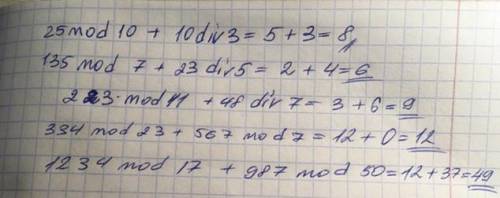 25 mod 10 + 10 div 3 = 5 + 3 = 8
135 mod 7 + 23 div 5 = 2 + 4 = 6
223 mod 11 + 48 div 7 = 3 + 6 = 9
334 mod 23 + 567 mod 7 = 12 + 0 = 12
1234 mod 17 + 987 mod 50 = 12 + 37 = 49